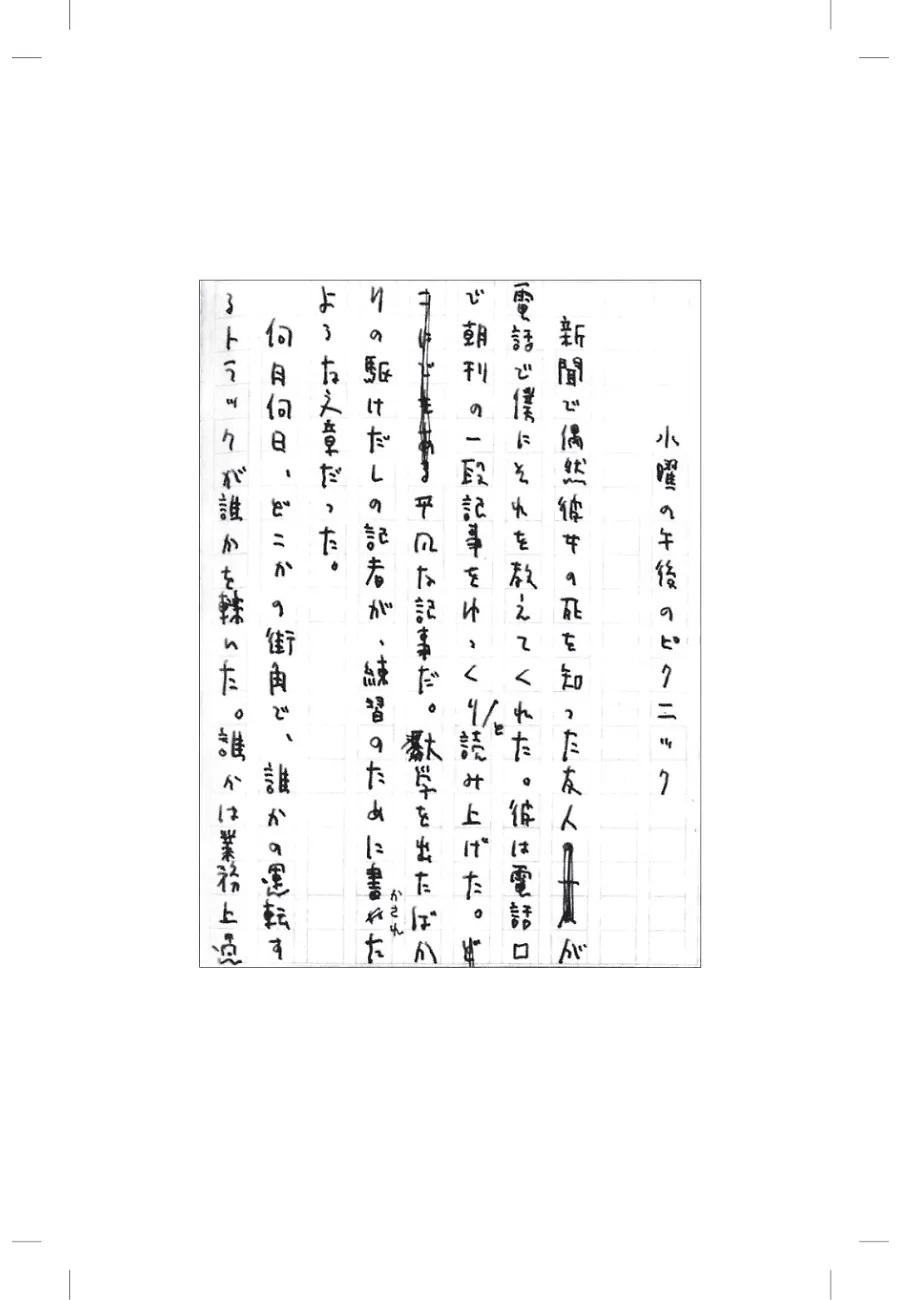 水曜の午後のピクニック
新聞で偶然彼女の死を知った友人が
電話で僕にそれを教えてくれた。彼は電話口
で朝刊の一段記事をゆっくりと読み上げた。
平凡な記事だ。大学を出たばか
りの駆けだしの記者が、練習のために書かされた
ような文章だった。
何月何日、どこかの街角で、誰かの運転す
るトラックが誰かを轢いた。誰かは業務上過